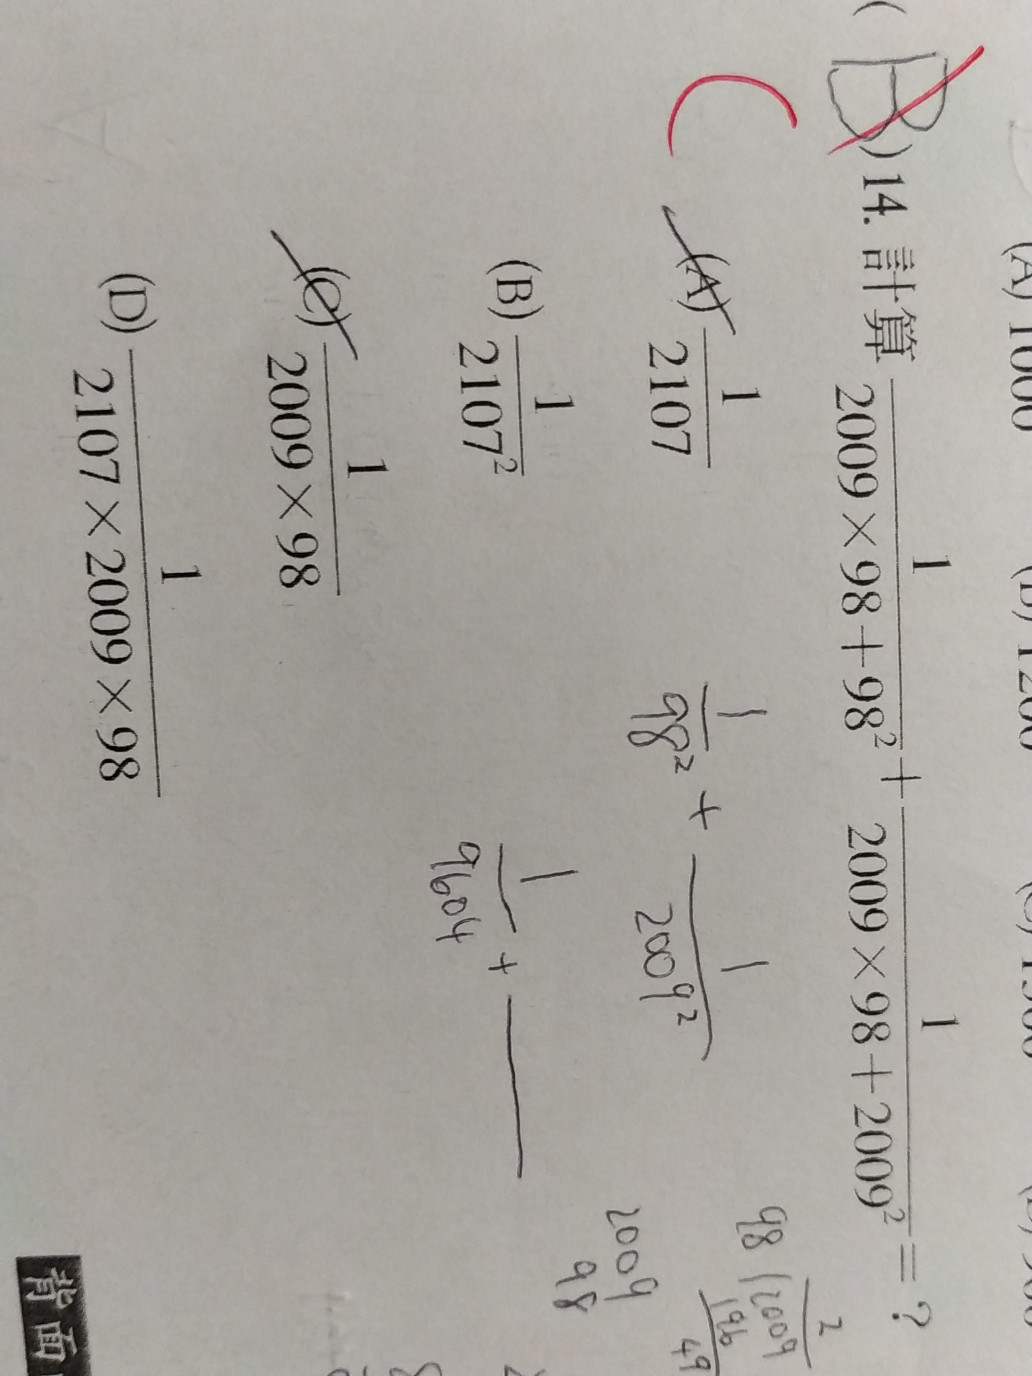 (A) 1000
( B ) 14. 計算 1/(2009×98+98²) + 1/(2009×98+2009²) = ?
C
(A) 1/2107
(B) 1/2107²
(C) 1/(2009×98)
(D) 1/(2107×2009×98)
1/98² + 1/2009²
1/9604 +
2
98 2009
196
49
2009
98
背面